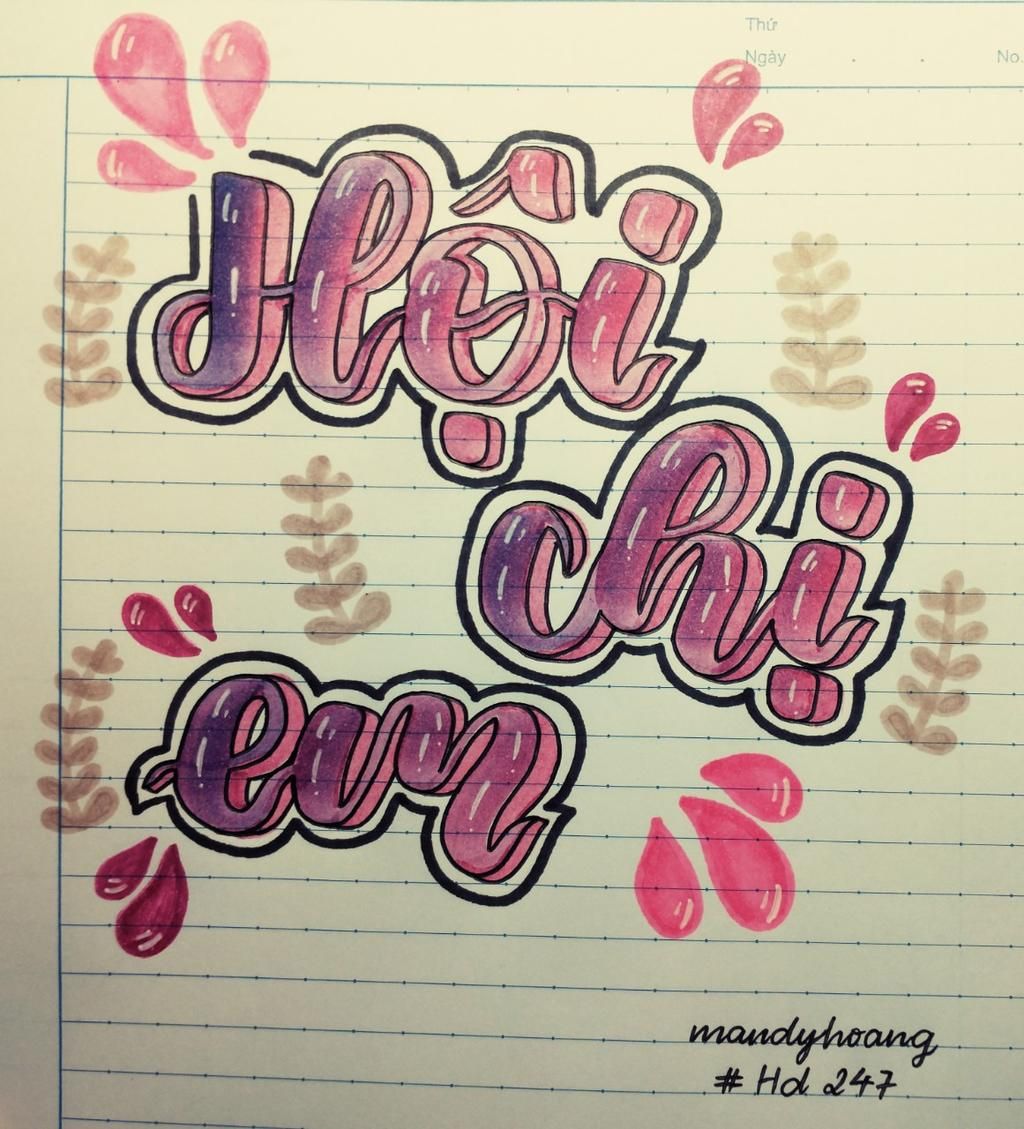 Thứ
Ngày No.
Hội
chị
em
mandyhoang
# Hd 247